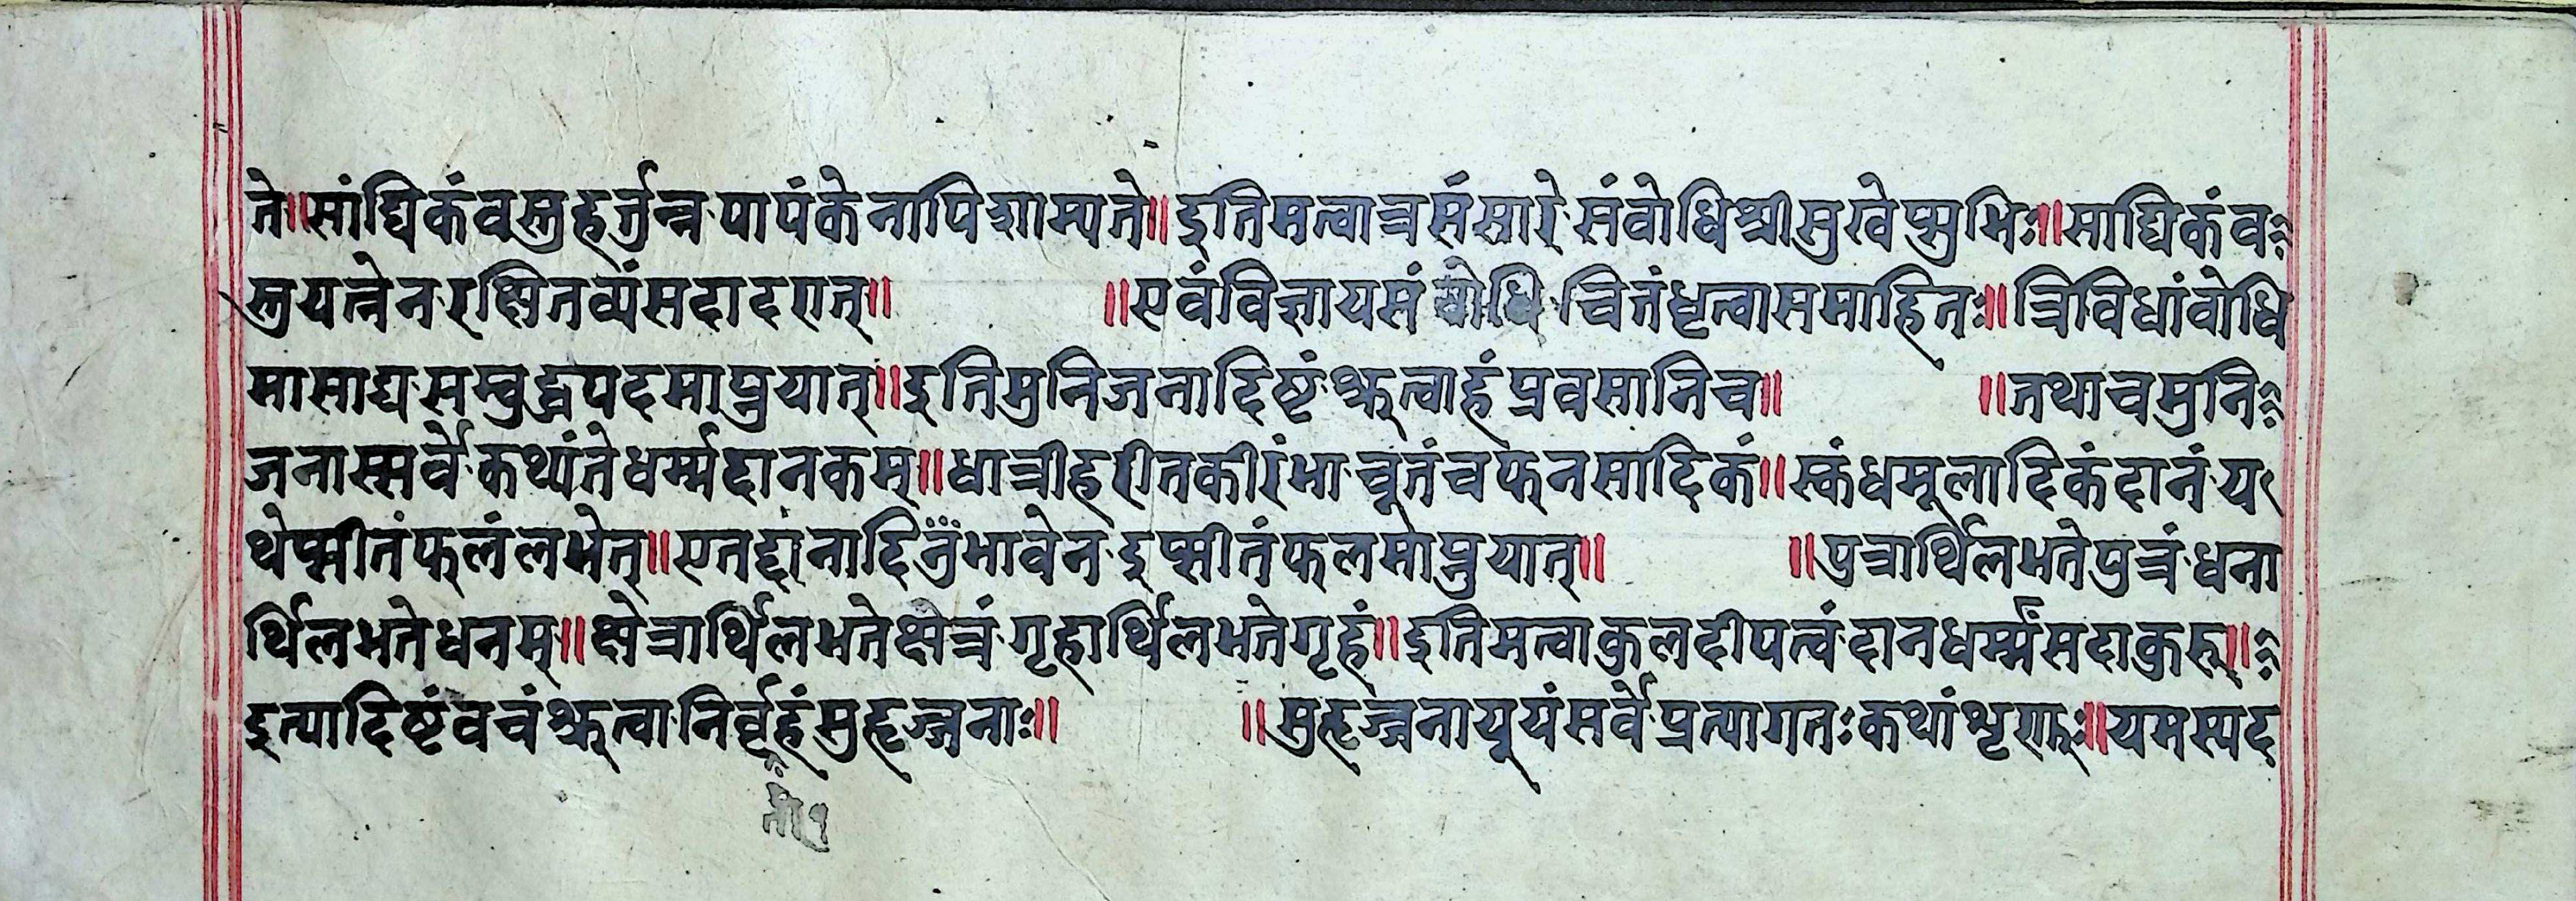 ते॥सांघिकंवस्तुहर्त्तुन्नपापंकेनापिशाम्यते॥इतिमत्वात्रसंसारेसंबोधिश्रीसुखेप्सुभिः॥साघिकंव
स्तुयत्नेनरक्षितव्यंसदादरात्॥ ॥एवंविज्ञायसंबोधिचित्तंधृत्वासमाहितः॥त्रिविधांबोधि
मासाद्यसम्बुद्धपदमाप्नुयात्॥इतिमुनिजनादिष्टंश्रुत्वाहंप्रवसानिच॥ ॥तथाचमुनि
जनास्सर्वेकथांतेधर्म्मदानकम्॥धात्रीहरीतकीरंभाचूतंचफनसादिकं॥स्कंधमूलादिकंदानंय
थेप्सीतंफलंलभेत्॥एतद्दानादिनुंभावेनइप्सीतंफलमोप्नुयात्॥ ॥पुत्रार्थिलभतेपुत्रंधना
र्थिलभतेधनम्॥क्षेत्रार्थिलभतेक्षेत्रंगृहार्थिलभतेगृहं॥इतिमत्वाकुलदीपत्वंदानधर्म्मंसदाकुरु॥
इत्यादिष्टंवचंश्रुत्वानिर्वृहंसुहृज्जनाः॥ ॥सुहृज्जनायूयंसर्वेप्रत्यागतःकथांशृणुः॥यमस्यद